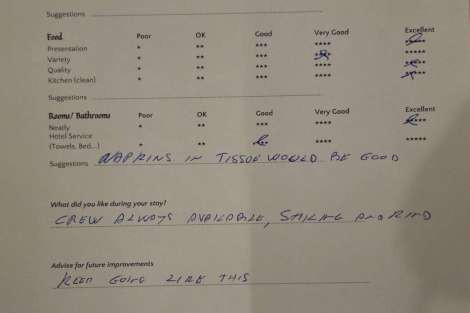 Suggestions
Food Poor OK Good Very Good Excellent
Presentation * ** *** **** *****
Variety * ** *** **** *****
Quality * ** *** **** *****
Kitchen (clean) * ** *** **** *****
Suggestions
Rooms/ Bathrooms Poor OK Good Very Good Excellent
Neatly * ** *** **** *****
Hotel Service
(Towels, Bed...) * ** *** **** *****
Suggestions NAPKINS IN TISSUE WOULD BE GOOD
What did you like during your stay?
CREW ALWAYS AVAILABLE, SMILING AND KIND
Advise for future improvements
KEEP GOING LIKE THIS